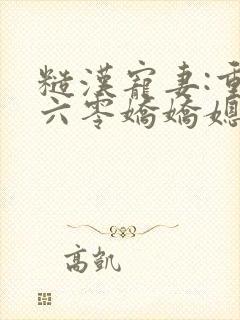 糙漢寵妻:重
六零嬌嬌媳
高凱